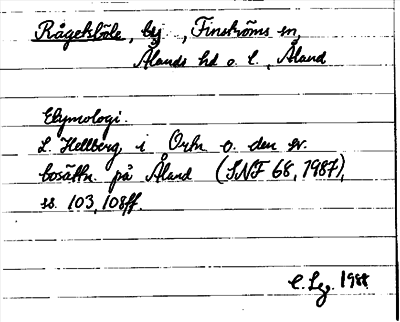 Rågetsböle, by, Finströms sn,
Ålands hd o. l., Åland
Etymologi.
L. Hellberg, i Ortn o. den sv.
bosättn. på Åland (SNF 68, 1987),
ss. 103, 108ff.
C. Lg. 1988